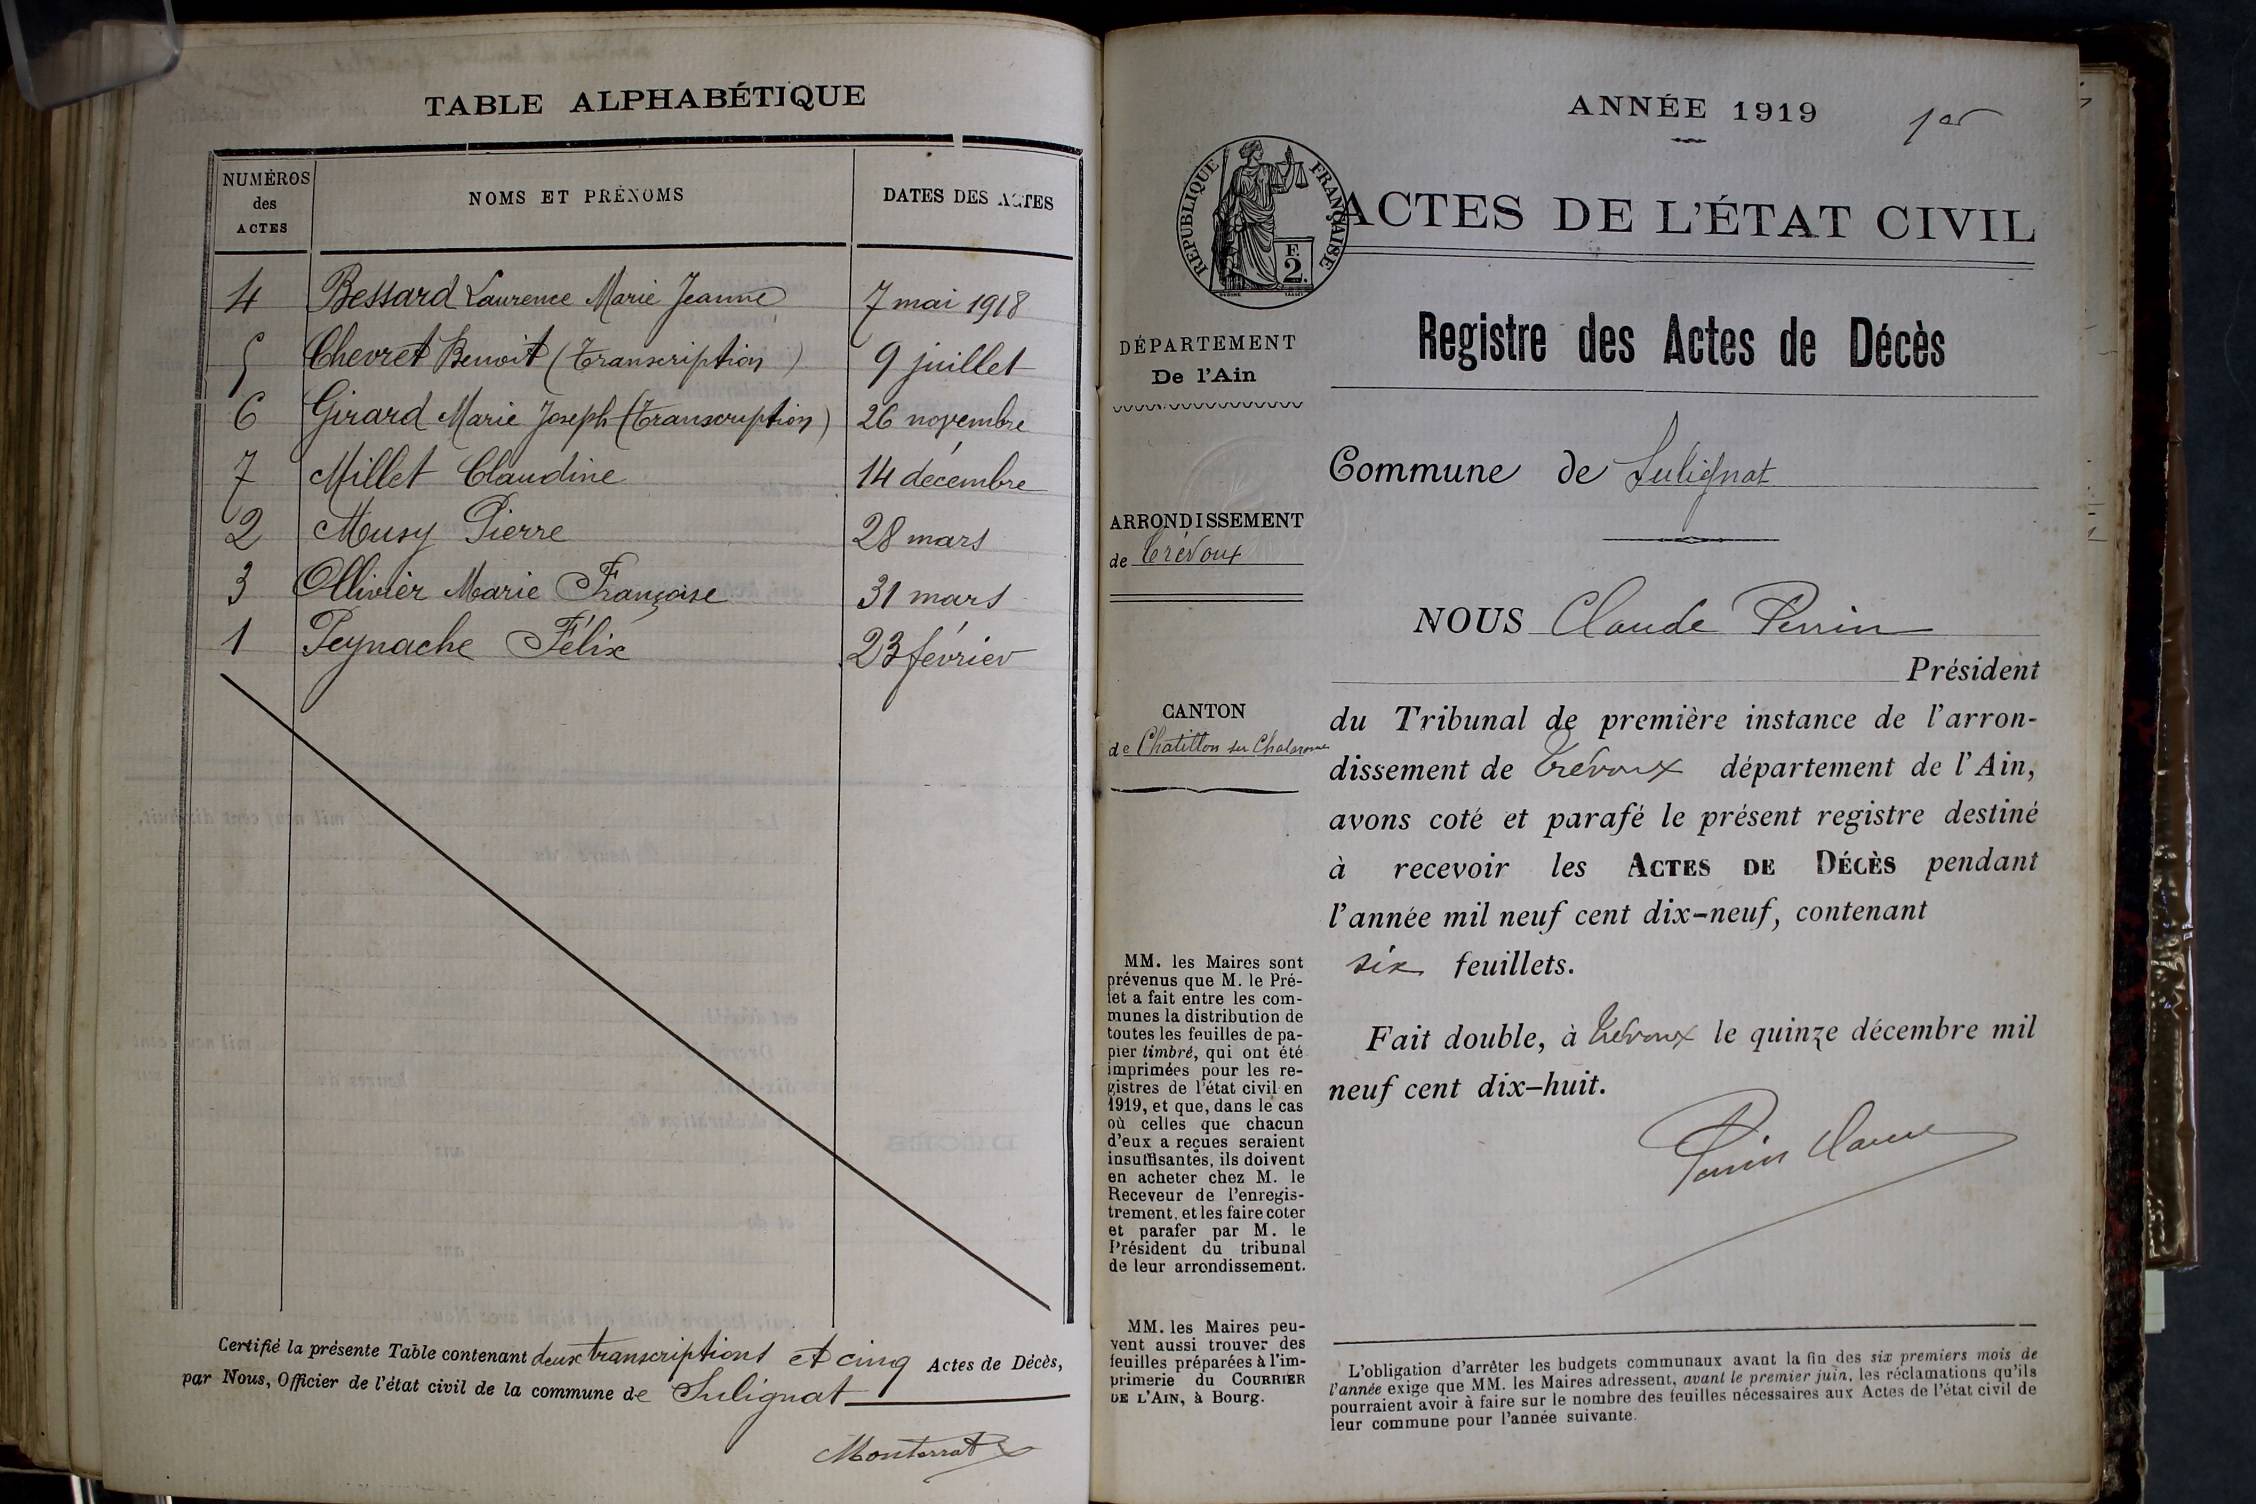 TABLE ALPHABÉTIQUE
NUMÉROS
des
ACTES
NOMS ET PRÉNOMS
DATES DES ACTES
4 Bessard Laurence Marie Jeanne 7 mai 1918
5 Chevret Benoit (Transcription) 9 juillet
6 Girard Marie Joseph (Transcription) 26 novembre
7 Millet Claudine 14 décembre
2 Musy Pierre 28 mars
3 Ollivier Marie Françoise 31 mars
1 Peynache Félix 23 février
Certifié la présente Table contenant deux transcriptions et cinq Actes de Décès,
par Nous, Officier de l'état civil de la commune de Sulignat
Monterrat
ANNÉE 1919
1er
RÉPUBLIQUE FRANÇAISE
F.
2.
ACTES DE L'ÉTAT CIVIL
DÉPARTEMENT
De l'Ain
ARRONDISSEMENT
de Trévoux
CANTON
de Chatillon sur Chalaronne
MM. les Maires sont
prévenus que M. le Pré-
fet a fait entre les com-
munes la distribution de
toutes les feuilles de pa-
pier timbré, qui ont été
imprimées pour les re-
gistres de l'état civil en
1919, et que, dans le cas
où celles que chacun
d'eux a reçues seraient
insuffisantes, ils doivent
en acheter chez M. le
Receveur de l'enregis-
trement, et les faire coter
et parafer par M. le
Président du tribunal
de leur arrondissement.
MM. les Maires peu-
vent aussi trouver des
feuilles préparées à l'im-
primerie du COURRIER
DE L'AIN, à Bourg.
Registre des Actes de Décès
Commune de Sulignat
NOUS Claude Perrin
Président
du Tribunal de première instance de l'arron-
dissement de Trévoux département de l'Ain,
avons coté et parafé le présent registre destiné
à recevoir les ACTES DE DÉCÈS pendant
l'année mil neuf cent dix-neuf, contenant
six feuillets.
Fait double, à Trévoux le quinze décembre mil
neuf cent dix-huit.
Perrin Claude
L'obligation d'arrêter les budgets communaux avant la fin des six premiers mois de
l'année exige que MM. les Maires adressent, avant le premier juin, les réclamations qu'ils
pourraient avoir à faire sur le nombre des feuilles nécessaires aux Actes de l'état civil de
leur commune pour l'année suivante.